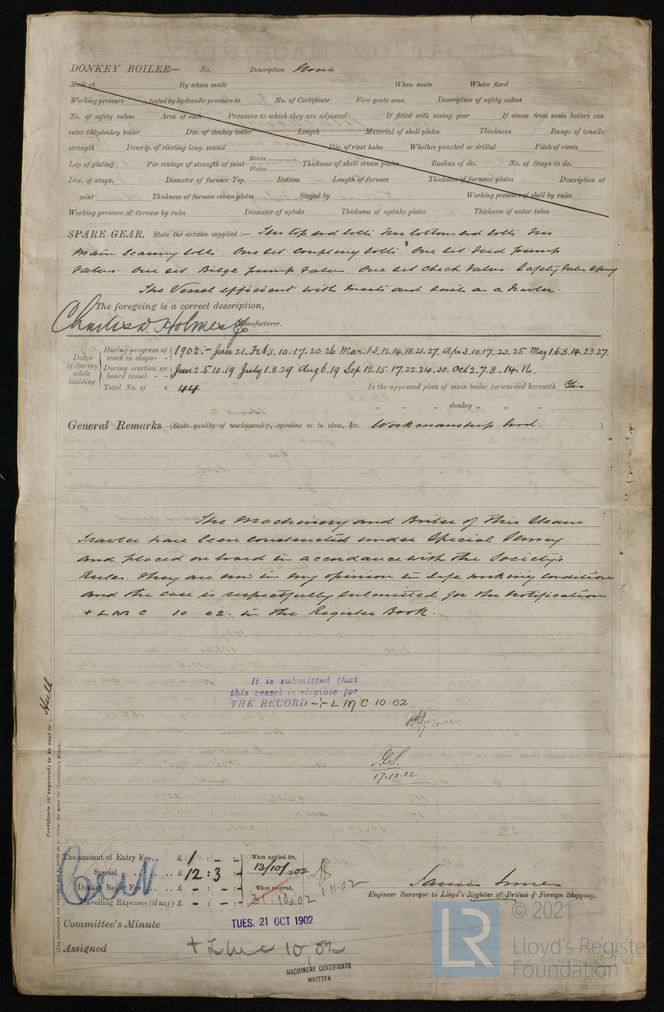 DONKEY BOILER— No. Description None
Made at By whom made When made Where fixed
Working pressure tested by hydraulic pressure to No. of Certificate Fire grate area Description of safety valves
No. of safety valves Area of each Pressure to which they are adjusted If fitted with easing gear If steam from main boilers can
enter the donkey boiler Dia. of donkey boiler Length Material of shell plates Thickness Range of tensile
strength Descrip. of riveting long. seams Dia. of rivet holes Whether punched or drilled Pitch of rivets
Lap of plating Per centage of strength of joint Rivets Plates Thickness of shell crown plates Radius of do. No. of Stays to do.
Dia. of stays. Diameter of furnace Top Bottom Length of furnace Thickness of furnace plates Description of
joint Thickness of furnace crown plates Stayed by Working pressure of shell by rules
Working pressure of furnace by rules Diameter of uptake Thickness of uptake plates Thickness of water tubes
SPARE GEAR. State the articles supplied:— Two top end bolts Two bottom end bolts Two
main bearing bolts. One set coupling bolts One set Feed pump
Valves One set Bilge pump Valves One set Check Valves Safety Valve Spring
The Vessel efficient with masts and sails as a trawler
The foregoing is a correct description,
Charles D. Holmes & Co Manufacturer.
Dates of Survey while building
During progress of work in shops - - 1902:- Jan 21. Feb 3. 10. 17. 20. 26 Mar. 13. 12. 14. 18. 21. 27. Apr 3. 10. 17. 23. 25 May 1. 6. 8. 14. 23. 27.
During erection on board vessel - - Jun 2. 5. 10. 19 July 1. 8. 29 Aug 6. 19 Sep 12. 15. 17. 22. 24. 30. Oct 2. 7. 8. 14. 16.
Total No. of visits 44 Is the approved plan of main boiler forwarded herewith Yes
" " " donkey " " "
General Remarks (State quality of workmanship, opinions as to class, &c. Workmanship Good. )
The Machinery and Boiler of this Steam
Trawler have been constructed under Special Survey
and placed on board in accordance with the Society's
Rules. they are now in my opinion in safe working condition
and the case is respectfully submitted for the notification
+ L M C 10. 02. in the Register Book.
It is submitted that
this vessel is eligible for
THE RECORD + L M C 10.02
17.10.02
J.S.
17.10.02
Certificate (if required) to be sent to Hull
The amount of Entry Fee. . £ 1 : - : - When applied for,
Special . . . . £ 12 : 3 : - 13/10/1902
Donkey Boiler Fee . . . £ - : - : - When received,
Travelling Expenses (if any) £ - : - : - 31.10.02
1.11.02
Engineer Surveyor to Lloyd's Register of British & Foreign Shipping.
Committee's Minute TUES. 21 OCT 1902
Assigned + L M C 10 02
MACHINERY CERTIFICATE
WRITTEN.
LR
© 2021
Lloyd's Register
Foundation